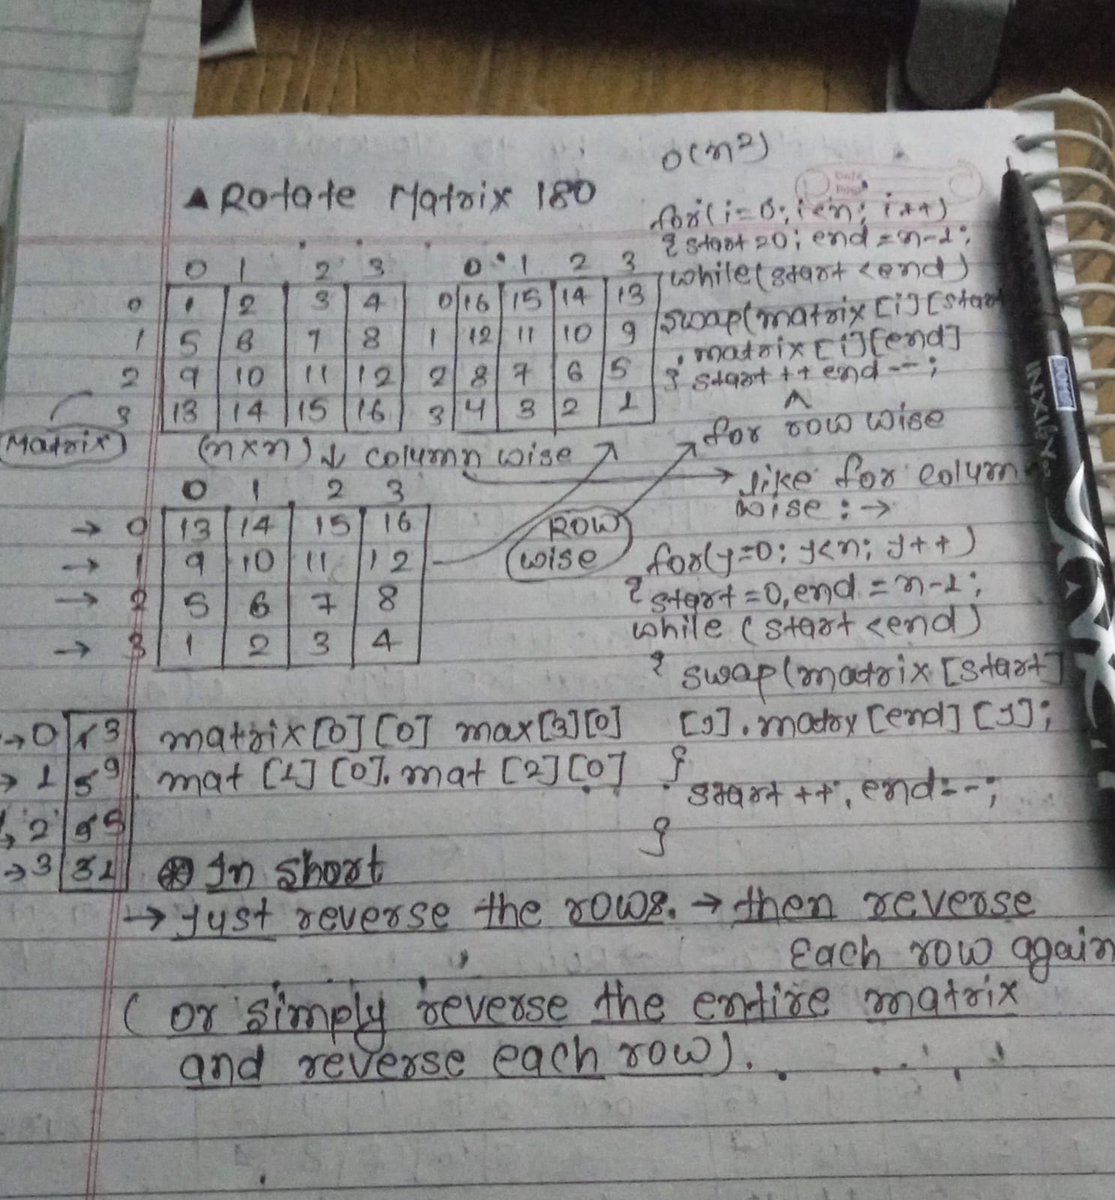 O(n²)
▲ Rotate Matrix 180
for(i=0; i<n; i++)
{ start=0; end=n-1;
while(start<end)
swap(matrix[i][start
, matrix[i][end]
} start++ end--;
^
for row wise
0 1 2 3
0 1 2 3 4
1 5 6 7 8
2 9 10 11 12
3 13 14 15 16
0 1 2 3
0 16 15 14 13
1 12 11 10 9
2 8 7 6 5
3 4 3 2 1
Matrix
(n×n) ↓ column wise
Row
wise
→ like for colum
wise : →
0 1 2 3
→ 0 13 14 15 16
→ 1 9 10 11 12
→ 2 5 6 7 8
→ 3 1 2 3 4
for(y=0; y<n; y++)
{ start=0, end=n-1;
while (start<end)
{ swap(matrix[start]
[y].matoy[end][y];
}
start++, end=-;
}
→ 0
→ 1 5 9
→ 2
→ 3
matrix[0][0] max[3][0]
mat [1][0]. mat [2][0]
⊛ In short
→ just reverse the rows. → then reverse
each row again
( or simply reverse the entire matrix
and reverse each row).
Date
INXIFX